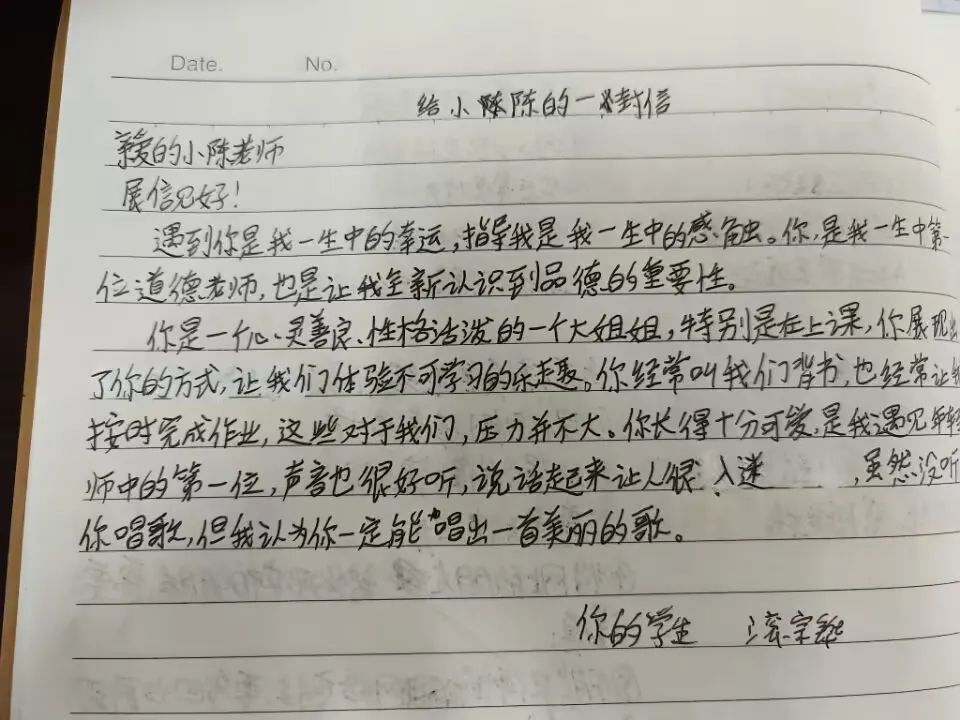 Date. No.
给小陈的一封信
亲爱的小陈老师
展信见好！
遇到你是我一生中的幸运，指导我是我一生中的感触。你，是我一生中第一
位道德老师，也是让我全新认识到品德的重要性。
你是一个心灵善良、性格活泼的一个大姐姐，特别是在上课，你展现出
了你的方式，让我们体验不可学习的乐趣。你经常叫我们背书，也经常让我
按时完成作业，这些对于我们，压力并不大。你长得十分可爱，是我遇见年轻
师中的第一位，声音也很好听，说话起来让人很入迷，虽然没听
你唱歌，但我认为你一定能唱出一首美丽的歌。
你的学生